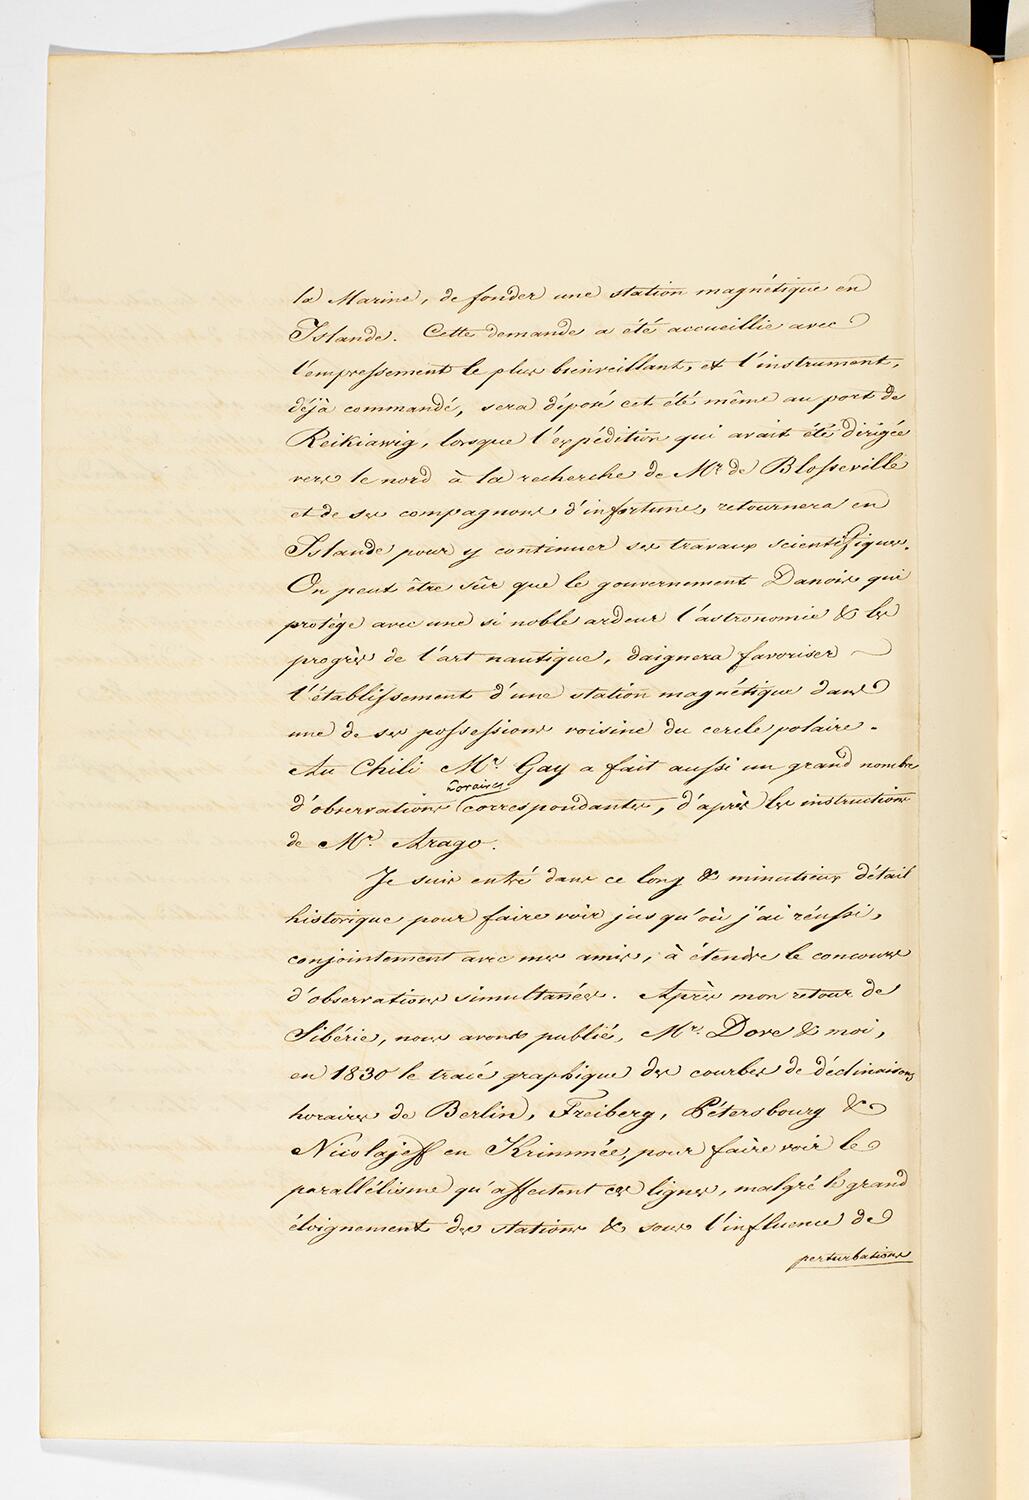 la Marine, de fonder une station magnétique en
Islande. Cette demande a été accueillie avec
l'empressement le plus bienveillant, et l'instrument,
déjà commandé, sera déposé cet été même au port de
Reikiawig, lorsque l'expédition qui avait été dirigée
vers le nord à la recherche de Mr. de Blosseville
et de ses compagnons d'infortune, retournera en
Islande pour y continuer ses travaux scientifiques.
On peut être sûr que le gouvernement Danois qui
protège avec une si noble ardeur l'astronomie & les
progrès de l'art nautique, daignera favoriser
l'établissement d'une station magnétique dans
une de ses possessions voisine du cercle polaire.
Au Chili Mr. Gay a fait aussi un grand nombre
horaires
d'observations correspondantes, d'après les instructions
de Mr. Arago.
Je suis entré dans ce long & minutieux détail
historique pour faire voir jusqu'où j'ai réussi,
conjointement avec mes amis, à étendre le concours
d'observations simultanées. Après mon retour de
Sibérie, nous avons publié, Mr. Dove & moi,
en 1830 le tracé graphique des courbes de déclinaisons
horaires de Berlin, Freiberg, Pétersbourg &
Nicolajeff en Krimmée, pour faire voir le
parallélisme qu'affectent ces lignes, malgré le grand
éloignement des stations & sous l'influence de
perturbations